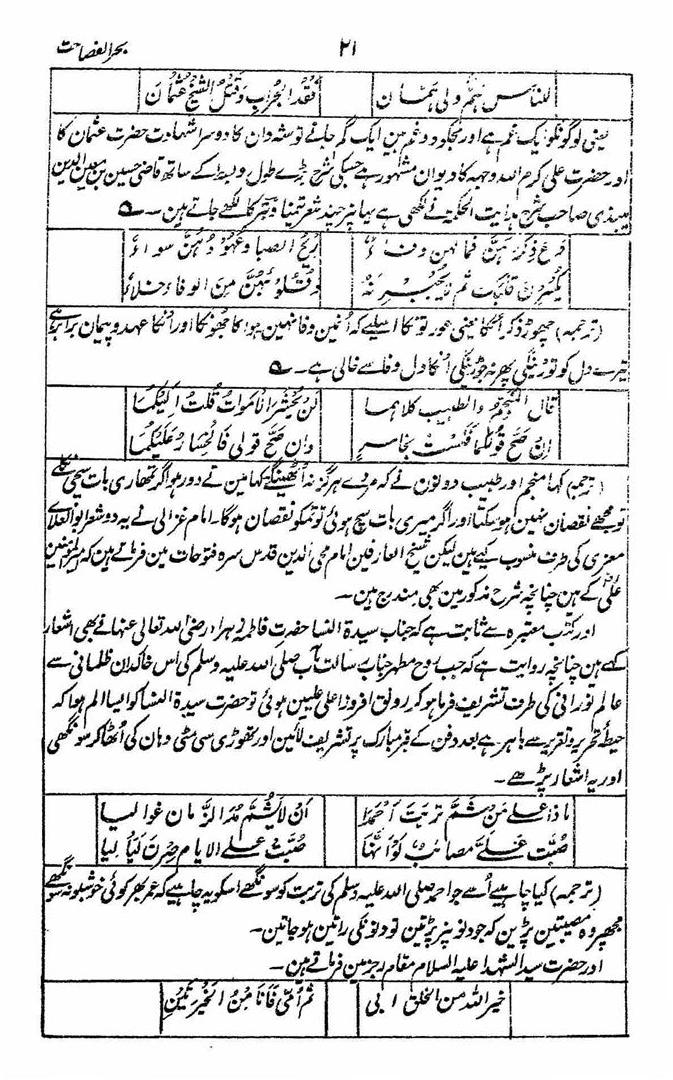 بحر الفصاحت
٢١
للناس هم ولی همان
فقد الجراب وقتل الشيخ عثمان
یعنی لوگونکو ایک غم ہے اور مجکو دو غم ہین ایک گم جانے توشہ دان کا دوسرا شہادت حضرت عثمان کا
اور حضرت علی کرم اللہ وجہہ کا دیوان مشہور ہے جسکی شرح بڑے طول و بسط کے ساتھ قاضی حسین بن معین الدین
میبذی صاحب شرح ہدایت الحکمۃ نے لکھی ہے یہانپر چند شعر تیمنا و تبرکا لکھے جاتے ہین۔
دع ذكرهن فما لهن وفاء
ريح الصبا وعهودهن سواء
يكسرن قلبك ثم لا يجبرنه
وقلوبهن من الوفاء خلاء
(ترجمہ) چھوڑ ذکر انکا یعنی عورتونکا اسلیے کہ اُنمین وفا نہین ہوا کا جھونکا اور انکا عہد و پیمان برابر ہے
تیرے دل کو توڑینگی پھر نہ جوڑینگی اُنکا دل وفا سے خالی ہے۔
قال المنجم والطبيب كلاهما
لن يحشر الاموات قلت اليكما
ان صح قولكما فلست بخاسر
وان صح قولي فالخسار عليكما
(ترجمہ) کہا منجم اور طبیب دونون نے کہ مردے ہرگز نہ اُٹھینگے کہا مین نے دور ہو اگر تمہاری بات سچی نکلے
تو مجھے نقصان نہین ہو سکتا اور اگر میری بات سچ ہوئی تو تمکو نقصان ہوگا۔ امام غزالی نے یہ دو شعر ابو العلای
معری کی طرف منسوب کیے ہین لیکن شیخ العارفین امام محی الدین قدس سرہ فتوحات مین فرماتے ہین کہ امیر المومنین
علیؓ کے ہین چنانچہ شرح مذکور مین بھی مندرج ہین۔
اور کتب معتبرہ سے ثابت ہے کہ جناب سیدۃ النسا حضرت فاطمہ زہرا رضی اللہ تعالی عنہا نے بھی اشعار
کہے ہین چنانچہ روایت ہے کہ جب روح مطہر جناب رسالت مآب صلی اللہ علیہ وسلم کی اس خاکدان ظلمانی سے
عالم نورانی کی طرف تشریف فرما ہو کر رونق افروز اعلی علیین ہوئی تو حضرت سیدۃ النسا کو ایسا الم ہوا کہ
حیطۂ تحریر و تقریر سے باہر ہے بعد دفن کے قبر مبارک پر تشریف لائین اور تھوڑی سی مٹی وہان کی اُٹھا کر سونگھی
اور یہ اشعار پڑھے۔
ماذا على من شم تربت احمدا
ان لا يشم مدا الزمان غواليا
صبت علي مصائب لو انها
صبت على الايام صرن لياليا
(ترجمہ) کیا چاہیے اُسے جو احمد صلی اللہ علیہ وسلم کی تربت کو سونگھے اسکو یہ چاہیے کہ عمر بھر کوئی خوشبو نہ سونگھے
مجھپر وہ مصیبتین پڑین کہ جو دنونپر پڑتین تو دنونکی راتین ہو جاتین۔
اور حضرت سید الشہدا علیہ السلام مقام رجز مین فرماتے ہین۔
خير الله من الخلق ابی
ثم امی فانا من الخيرتين